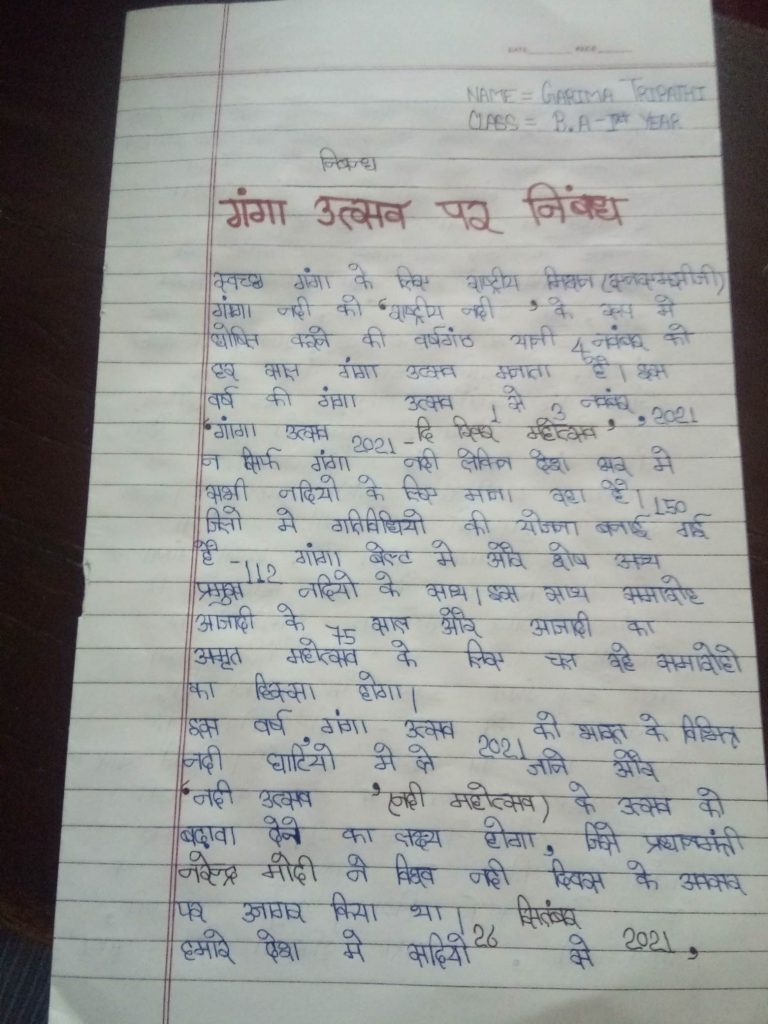 DATE PAGE
NAME = GARIMA TRIPATHI
CLASS = B.A - Ist YEAR
निबन्ध
गंगा उत्सव पर निबंध
स्वच्छ गंगा के लिए राष्ट्रीय मिशन (एनएमसीजी)
गंगा नदी को 'राष्ट्रीय नदी' के रूप मे
घोषित करने की वर्षगंठ यानी 4 नवंबर को
हर साल गंगा उत्सव मनाता है। इस
वर्ष की गंगा उत्सव 1 से 3 नवंबर, 2021
'गांगा उत्सव 2021 - दि रिवर महोत्सव',
न सिर्फ गंगा नदी लेकिन देश भर मे
सभी नदियो के लिए मना रहा है। 150
जिलो मे गतिविधियो की योजना बनाई गई
है - 112 गांगा बेल्ट मे और शेष अन्य
प्रमुख नदियो के साथ। इस साथ समारोह
आजादी के 75 साल और आजादी का
अमृत महोत्सव के लिए चल रहे समारोहो
का हिस्सा होगा।
इस वर्ष गंगा उत्सव 2021 को भारत के विभिन्न
नदी घाटियो मे ले जाने और
'नदी उत्सव' (नदी महोत्सव) के उत्सव को
बढ़ावा देने का लक्ष्य होगा, जिसे प्रधानमंत्री
नरेन्द्र मोदी ने विश्व नदी दिवस के अवसर
पर उजागर किया था। 26 सितंबर 2021,
हमारे देश मे सदियो से